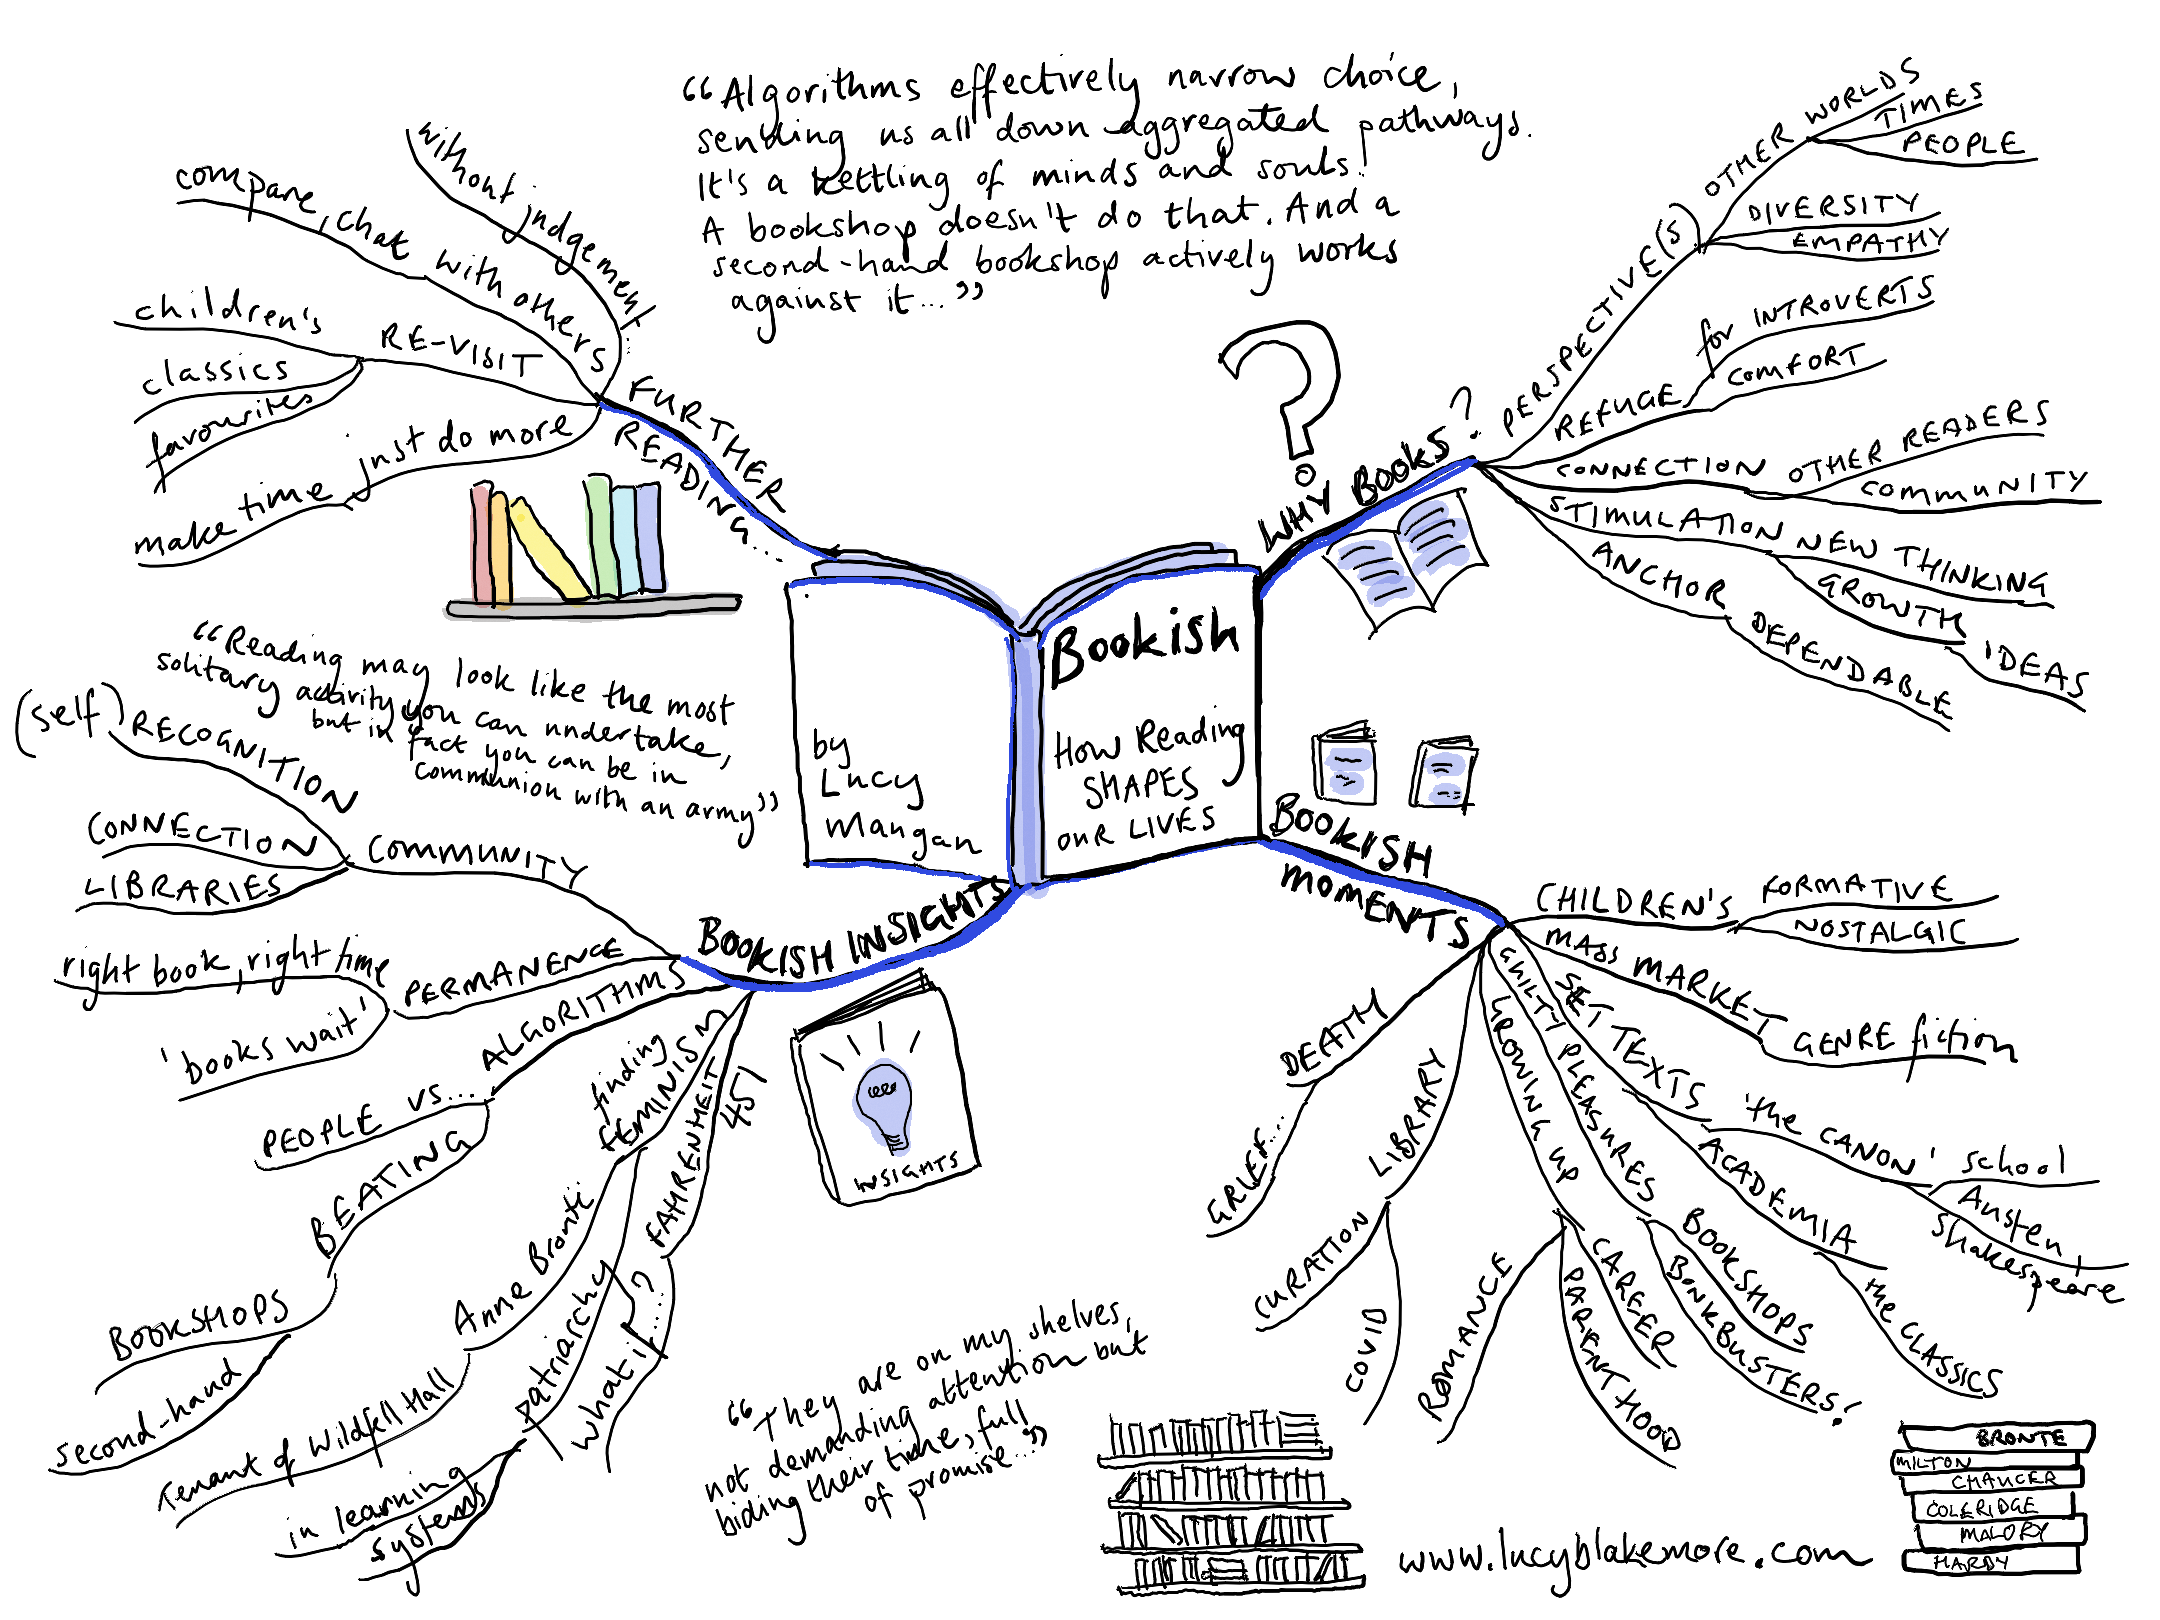 “Algorithms effectively narrow choice,
sending us all down aggregated pathways.
It's a kettling of minds and souls.
A bookshop doesn't do that. And a
second-hand bookshop actively works
against it...”
Bookish
How Reading
SHAPES
OUR LIVES
by
Lucy
Mangan
WHY BOOKS?
PERSPECTIVE(S)
OTHER WORLDS
TIMES
PEOPLE
DIVERSITY
EMPATHY
REFUGE
for INTROVERTS
COMFORT
CONNECTION
OTHER READERS
COMMUNITY
STIMULATION
NEW THINKING
GROWTH
IDEAS
ANCHOR
DEPENDABLE
BOOKISH
MOMENTS
CHILDREN'S
FORMATIVE
NOSTALGIC
MASS MARKET
GENRE fiction
SET TEXTS
'the CANON'
school
Austen,
Shakespeare
ACADEMIA
the CLASSICS
GUILTY PLEASURES
BOOKSHOPS
BONKBUSTERS!
GROWING UP
CAREER
PARENTHOOD
ROMANCE
LIBRARY
CURATION
COVID
DEATH
GRIEF...
BOOKISH INSIGHTS
COMMUNITY
(self) RECOGNITION
CONNECTION
LIBRARIES
PERMANENCE
right book, right time
'books wait'
ALGORITHMS
PEOPLE vs...
BEATING
BOOKSHOPS
second-hand
finding
FEMINISM
Anne Brontë
Tenant of Wildfell Hall
patriarchy
in learning
systems
FAHRENHEIT
451
what if...?
FURTHER
READING...
without judgement...
compare, chat with others
RE-VISIT
children's
classics
favourites
just do more
make time
“Reading may look like the most
solitary activity you can undertake,
but in fact you can be in
communion with an army”
INSIGHTS
“They are on my shelves,
not demanding attention but
biding their time, full
of promise...”
BRONTE
MILTON
CHAUCER
COLERIDGE
MALORY
HARDY
www.lucyblakemore.com